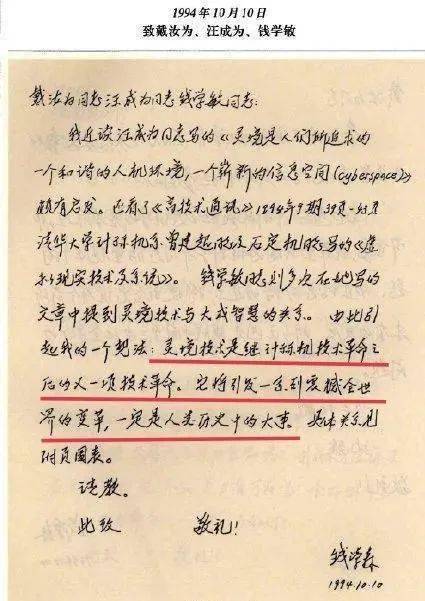 1994年10月10日
致戴汝为、汪成为、钱学敏
戴汝为同志汪成为同志钱学敏同志:
我近读汪成为同志写的《灵境是人们所追求的
一个和谐的人机环境,一个崭新的信息空间(cyberspace)》
颇有启发。也看了《高技术通讯》1994年9期39页-43页
清华大学计算机系曾建超教授石定机教授写的《虚
拟现实技术及系统》。钱学敏教授则多次在她写的
文章中提到灵境技术与大成智慧的关系。由此引
起我的一个想法:灵境技术是继计算机技术革命之
后的又一项技术革命。它将引发一系列震撼全世
界的变革,一定是人类历史中的大事。具体关系见
附页图表。
请教。
此致 敬礼!
钱学森
1994.10.10